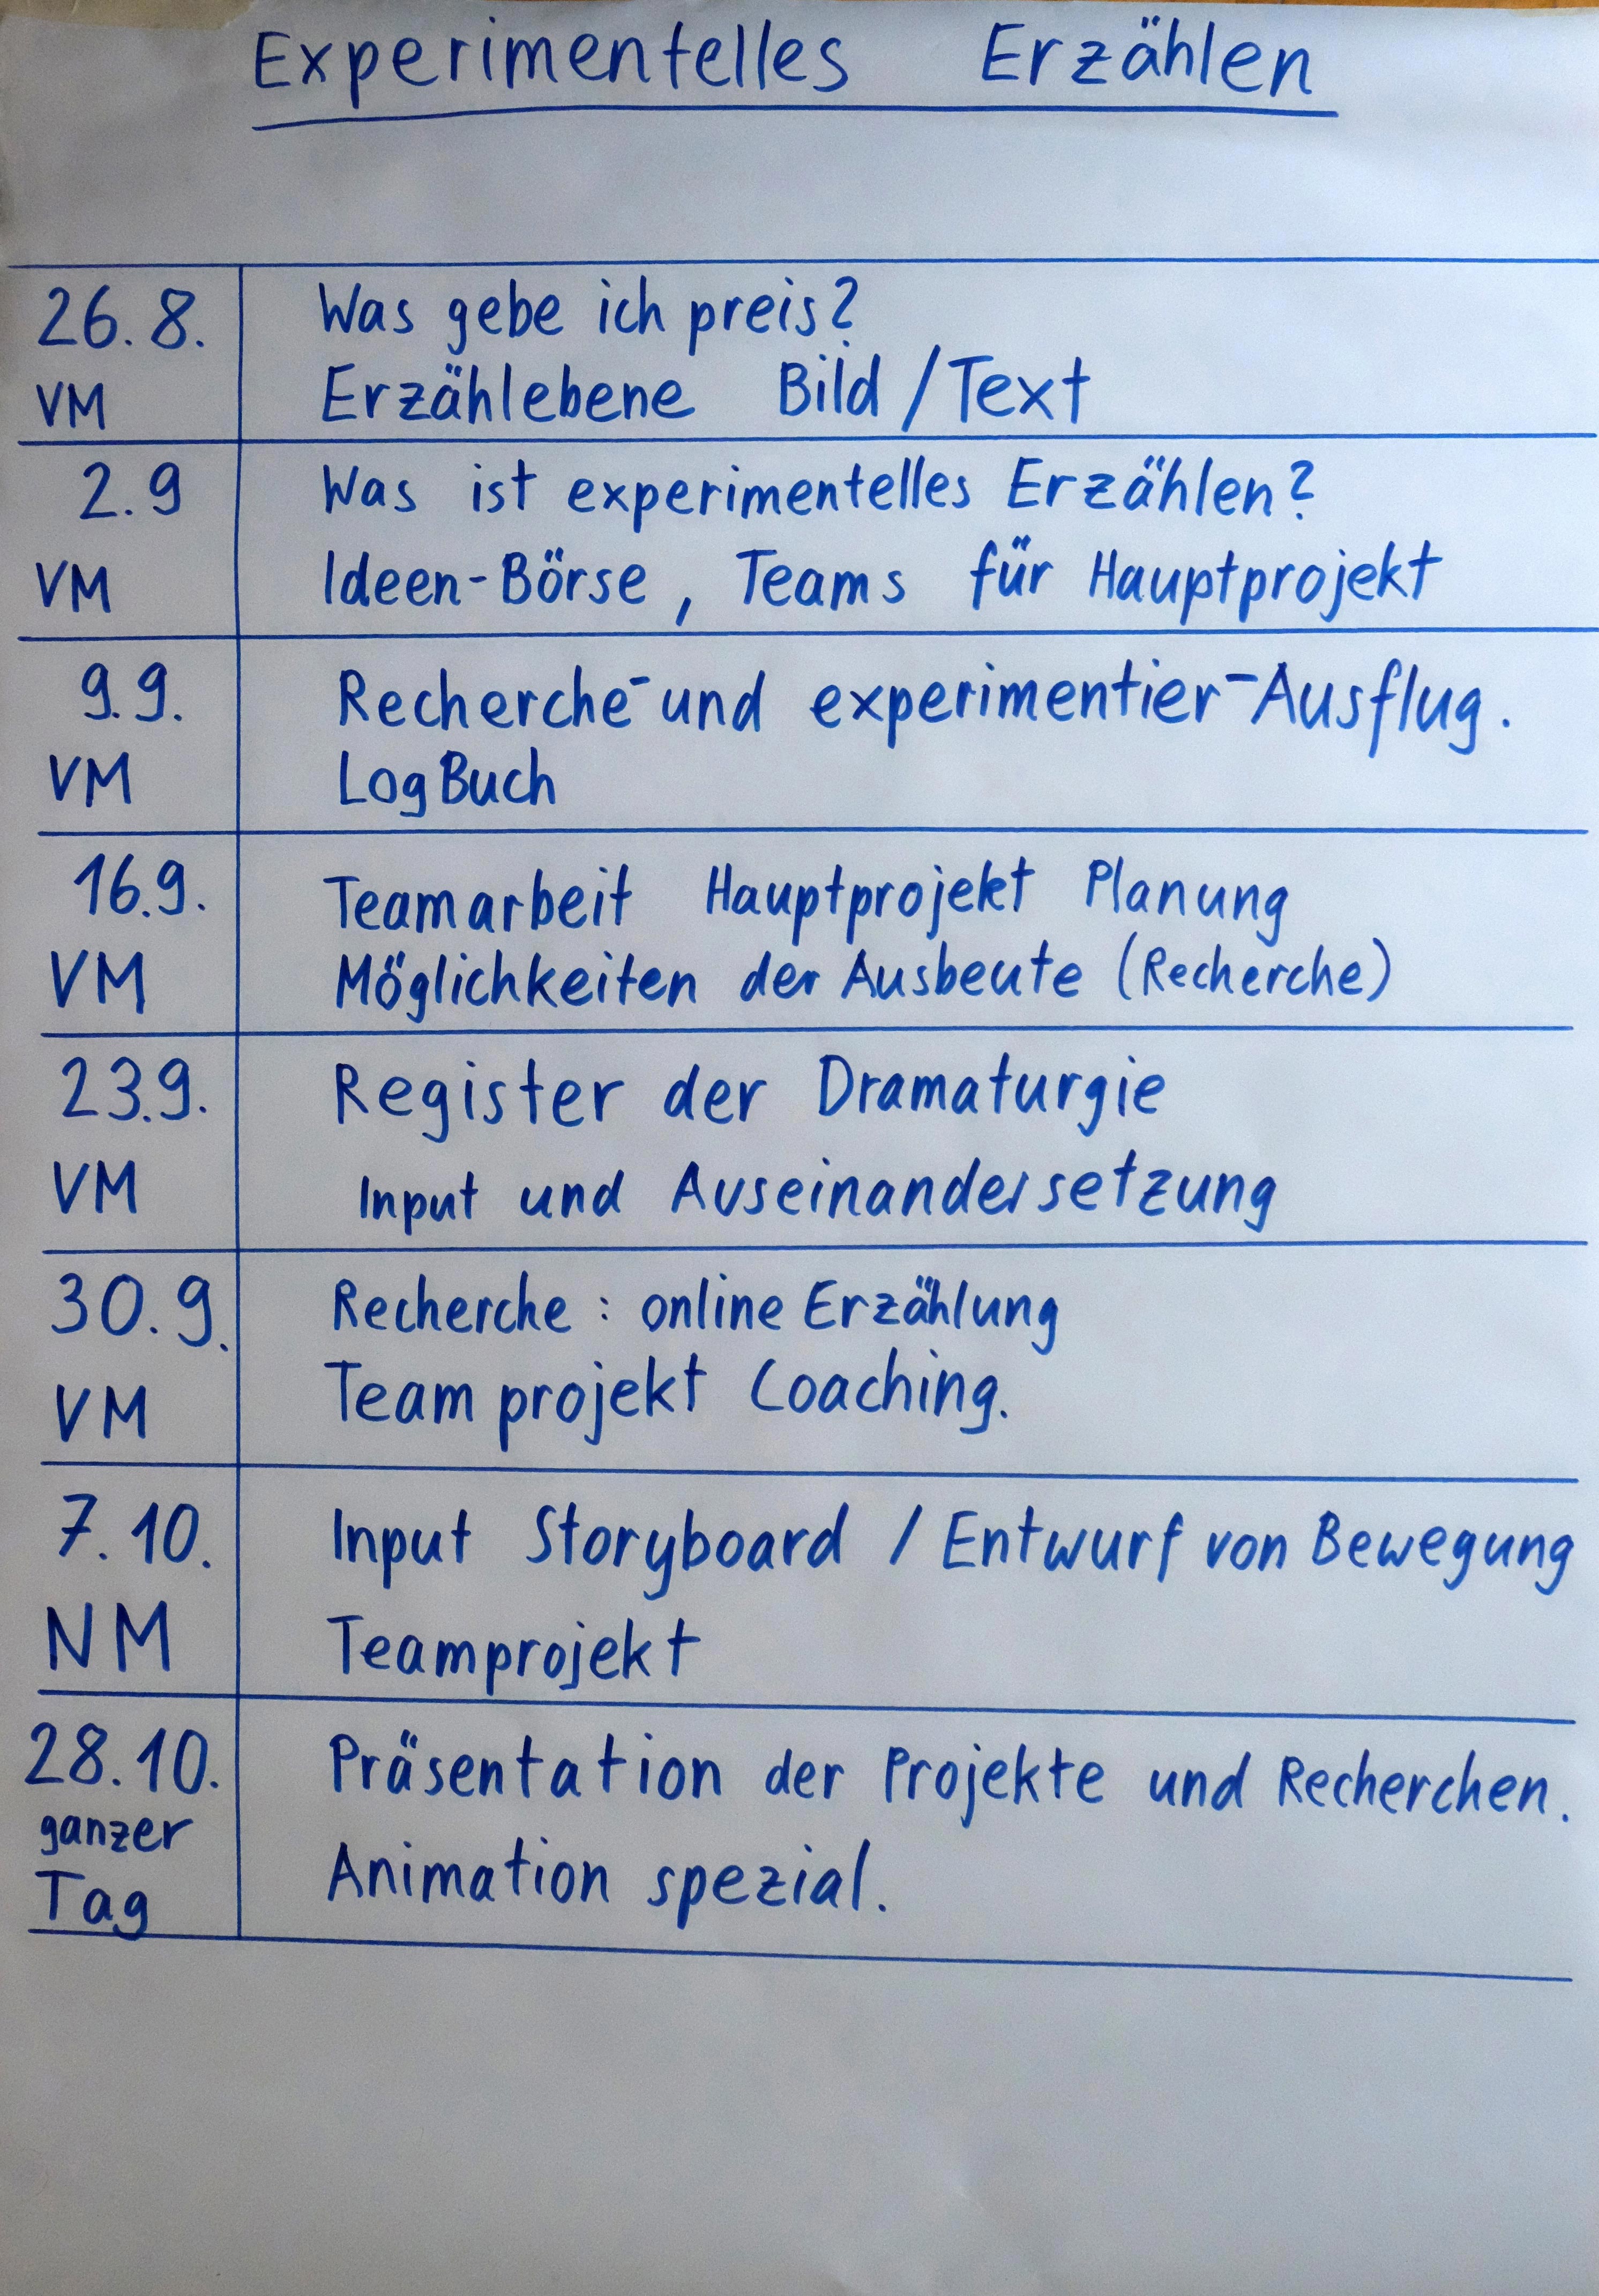 Experimentelles Erzählen
26.8. Was gebe ich preis?
VM Erzählebene Bild / Text
2.9 Was ist experimentelles Erzählen?
VM Ideen-Börse, Teams für Hauptprojekt
9.9. Recherche- und experimentier-Ausflug.
VM LogBuch
16.9. Teamarbeit Hauptprojekt Planung
VM Möglichkeiten der Ausbeute (Recherche)
23.9. Register der Dramaturgie
VM Input und Auseinandersetzung
30.9. Recherche: online Erzählung
VM Teamprojekt Coaching.
7.10. Input Storyboard / Entwurf von Bewegung
NM Teamprojekt
28.10. Präsentation der Projekte und Recherchen.
ganzer
Tag Animation spezial.